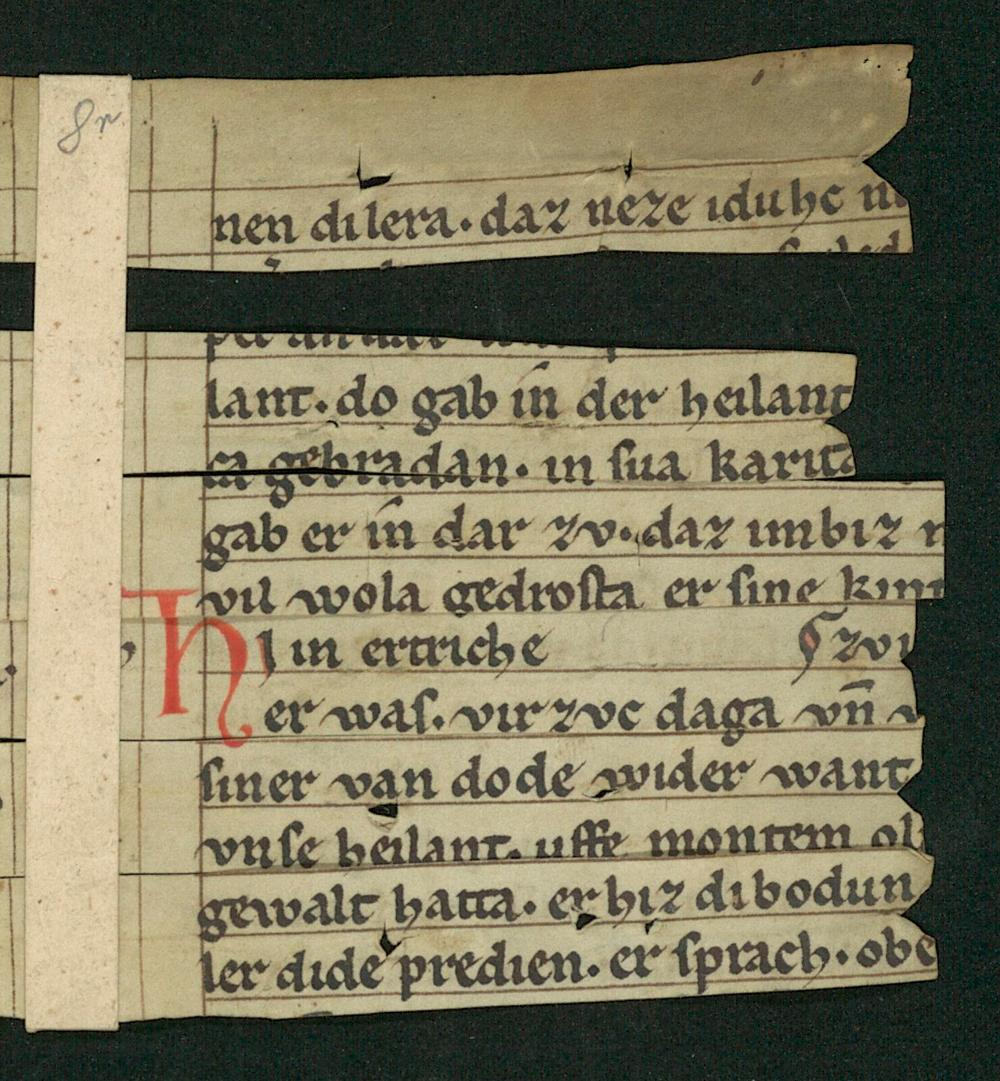 8r
nen di lera. daz neze iduhc
lant. do gab in der heilant
ca gebradan. in sua karita
gab er in dar zv. daz imbiz
vil wola gedrosta er sine kint
Hi in ertriche ¶ zvi
er was. vir zvc daga vn̄
siner van dode wider want
vnse heilant. uffe montem oli
gewalt hatta. er hiz di bodun
ler dide predien. er sprach. obe